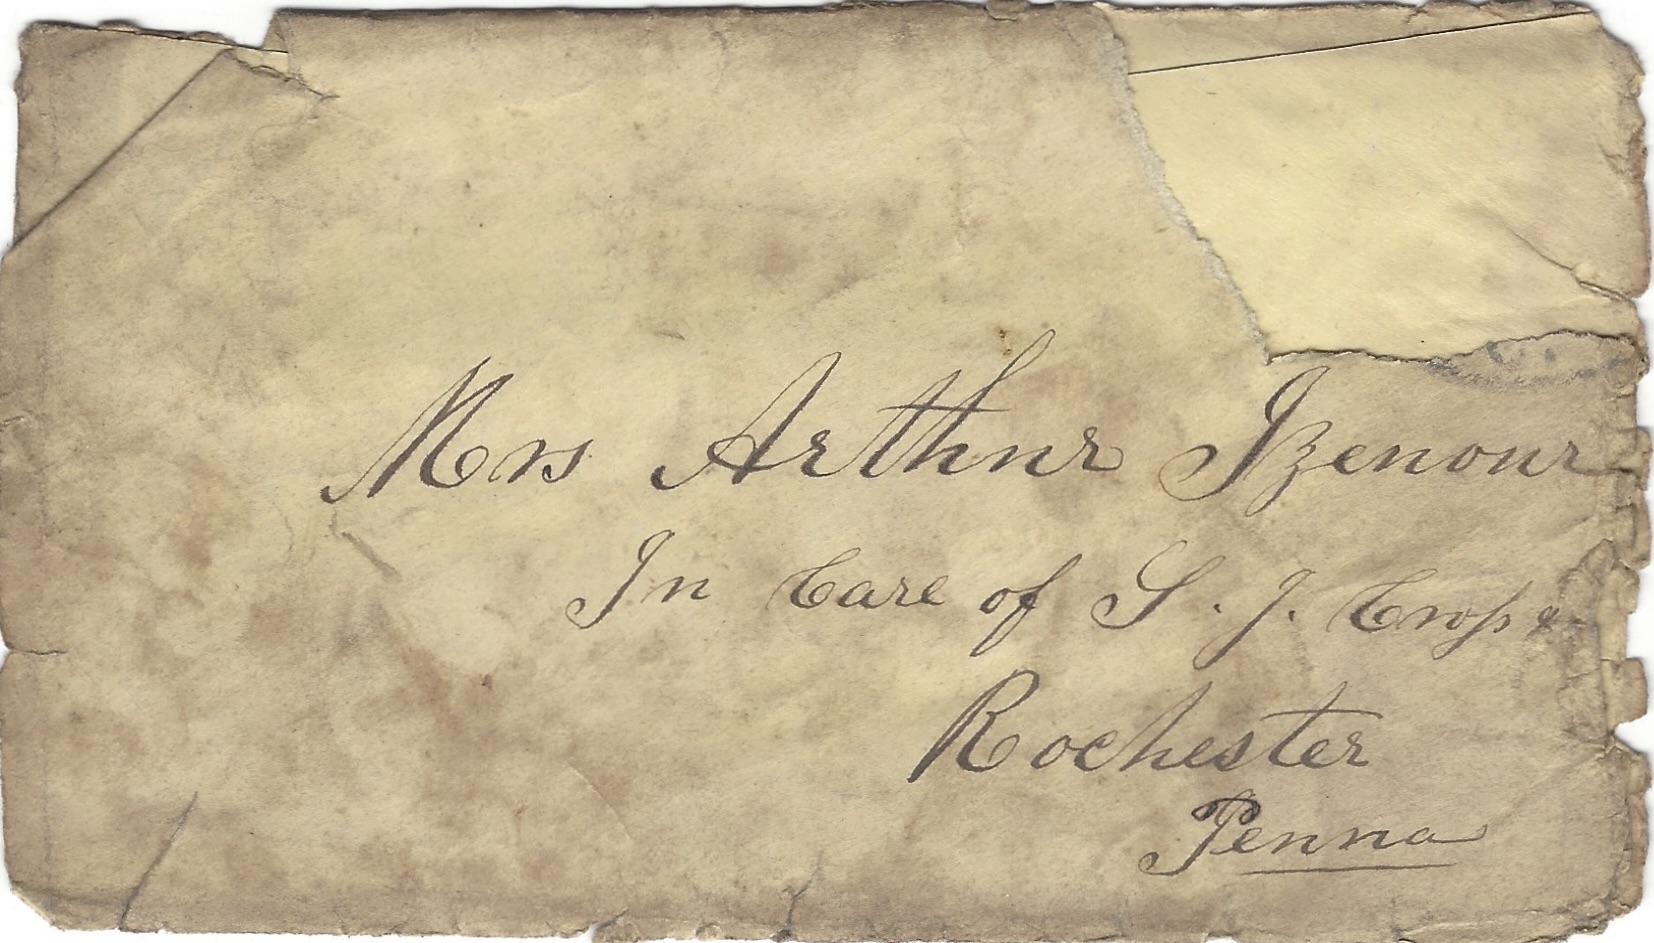 Mrs Arthur Izenour
In Care of S. J. Cross &
Rochester
Penna